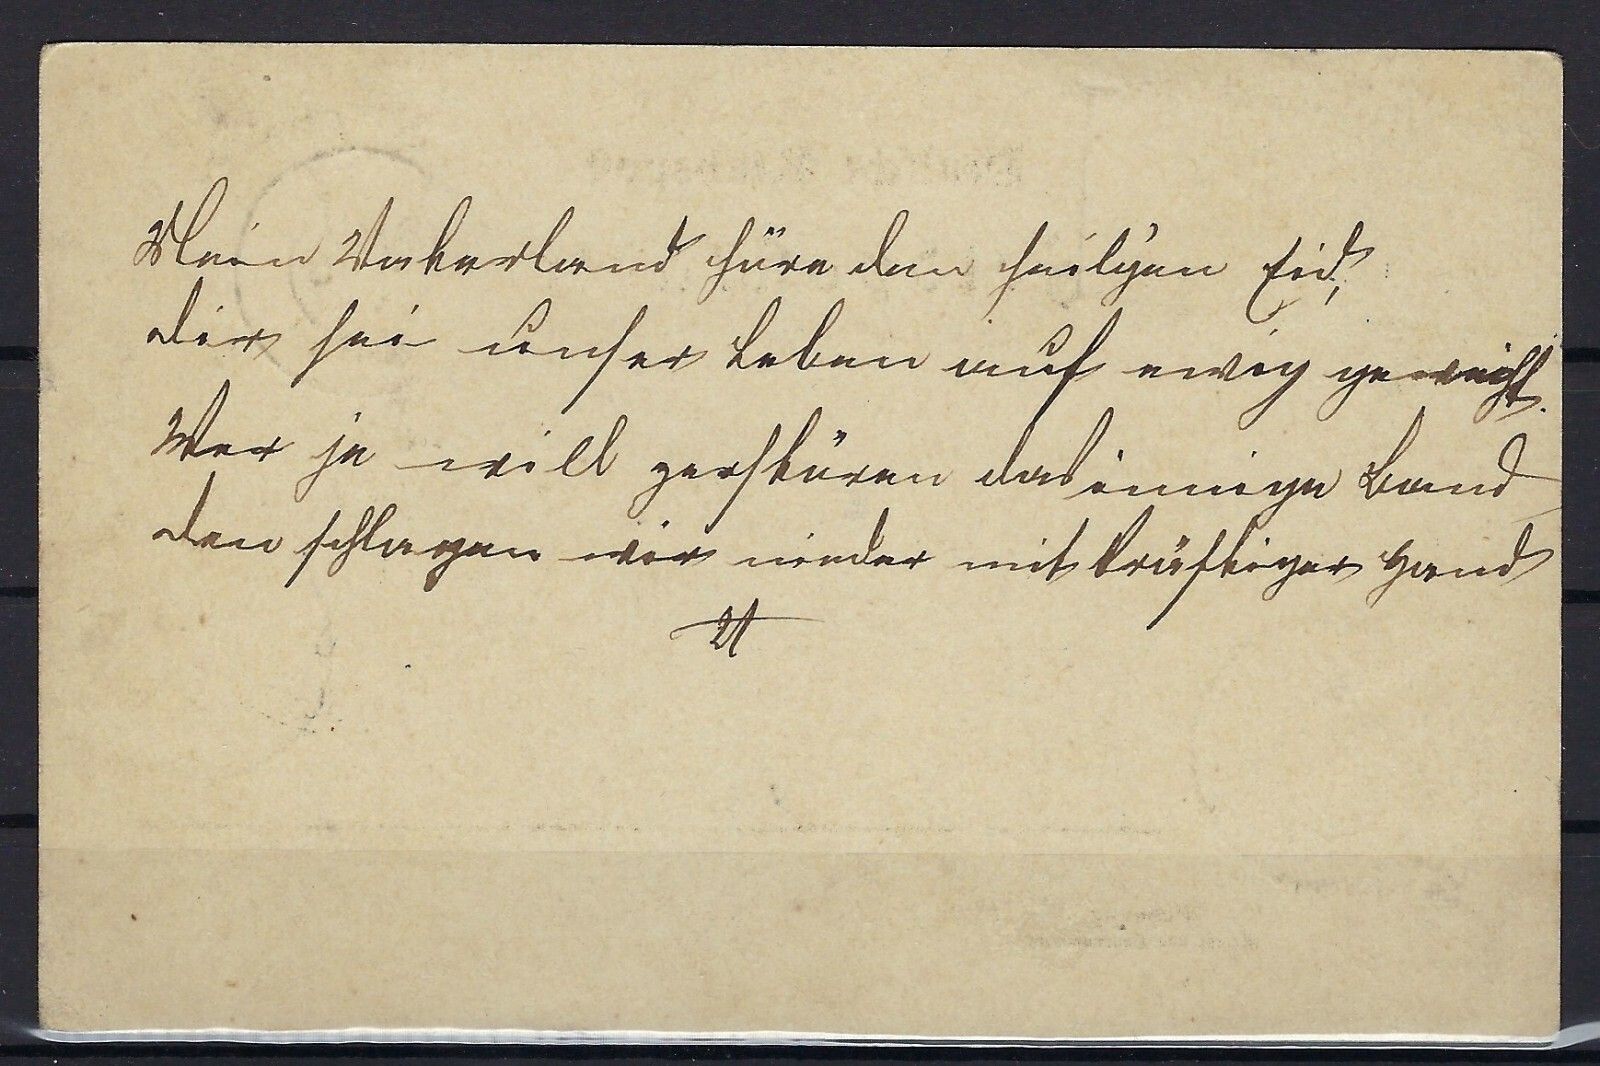 Mein Vaterland höre den heil'gen Eid,
dir sei unser Leben auf ewig geweiht.
Wer je will zerstören das innige Band
den schlagen wir nieder mit kräftiger Hand